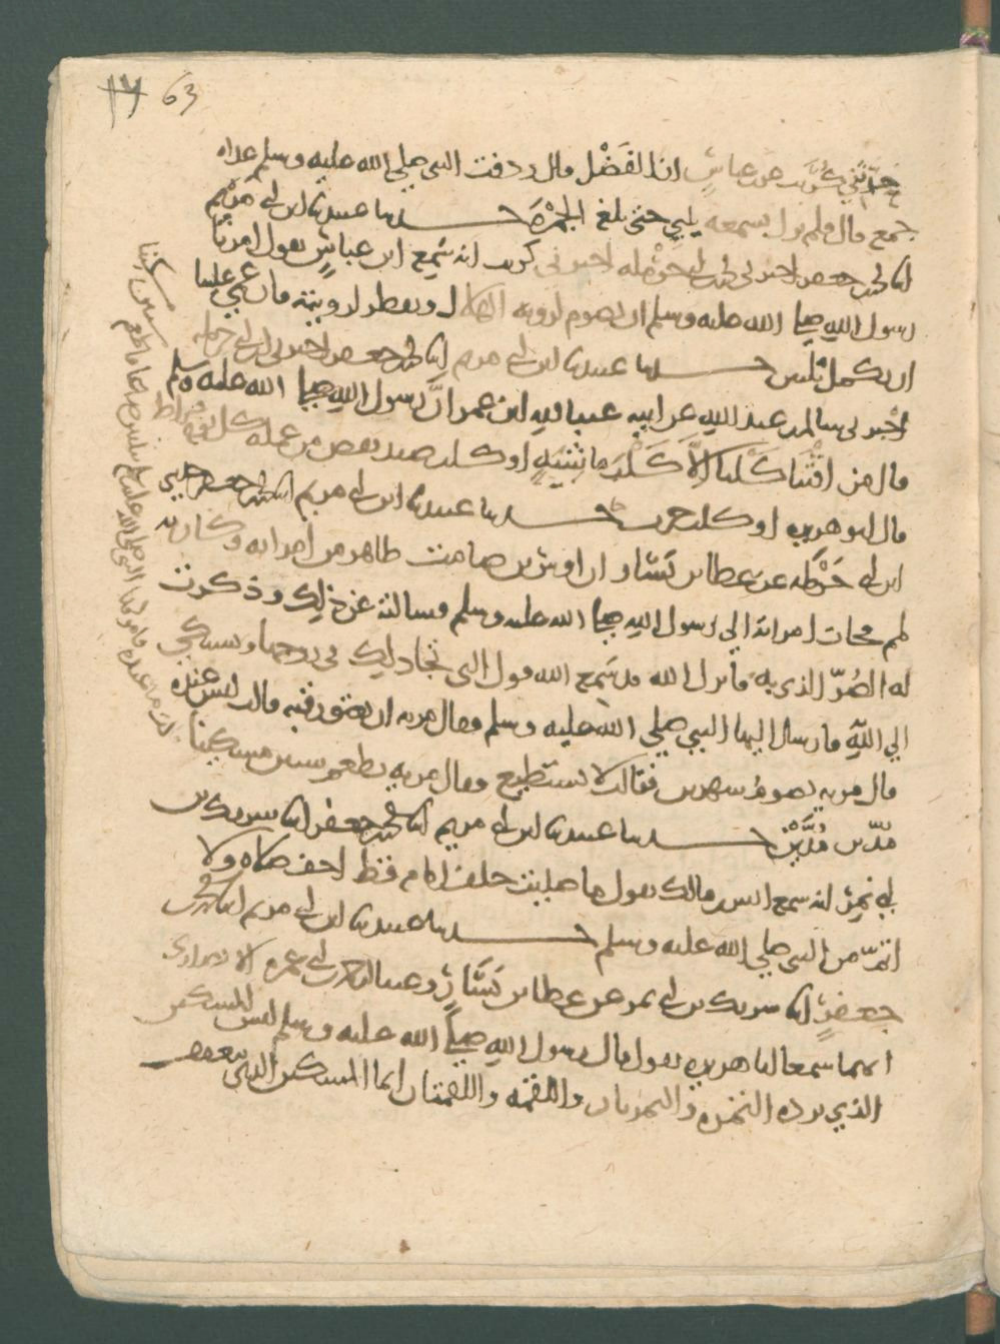 63
حدثني كريب عن عباس ان الفضل قال ردفت النبي صلى الله عليه وسلم غداه
جمع قال فلم نزل نسمعه يلبي حتى بلغ الجمرة حدثنا عبيد نا ابن ابي مريم
انا محمد بن جعفر اخبرني محمد بن ابي حرمله اخبرني كريب انه سمع ابن عباس يقول امرنا
رسول الله صلى الله عليه وسلم ان نصوم لرويه الهلال ونفطر لرويته فان غمي علينا
ان نكمل ثلثين حدثنا عبيد نا ابن ابي مريم انا محمد بن جعفر اخبرني ابن ابي حرمله
اخبرني سالم بن عبد الله عن ابيه عبد الله ابن عمر ان رسول الله صلى الله عليه وسلم
قال من اقتنا كلبا الا كلب ماشيه او كلب صيد نقص من عمله كل يوم قيراط
قال ابو هريره او كلب حرث حدثنا عبيد نا ابن ابي مريم انا محمد بن جعفر حدثني
ابن ابي حرمله عن عطا بن يسار ان اوس بن صامت ظاهر من امراته وكان به
لمم فجات امراته الى رسول الله صلى الله عليه وسلم فسالته عن ذلك وذكرت
له الضر الذي به فانزل الله قد سمع الله قول التي تجادلك في زوجها وتشتكي
الى الله فارسل اليها النبي صلى الله عليه وسلم وقال مريه ان يعتق رقبه قالت ليس عنده
قال مريه يصوم شهرين فقالت لا يستطيع وقال مريه يطعم ستين مسكينا
مدين مدين حدثنا عبيد نا ابن ابي مريم انا محمد بن جعفر انا شريك بن
ابي نمر انه سمع انس بن مالك يقول ما صليت خلف امام قط اخف صلاه ولا
اتم من النبي صلى الله عليه وسلم حدثنا عبيد نا ابن ابي مريم انا محمد بن
جعفر انا شريك بن ابي نمر عن عطا بن يسار وعبد الرحمن بن ابي عمره الانصاري
انهما سمعا ابا هريره يقول قال رسول الله صلى الله عليه وسلم ليس المسكين
الذي ترده التمره والتمرتان واللقمه واللقمتان انما المسكين الذي يتعفف